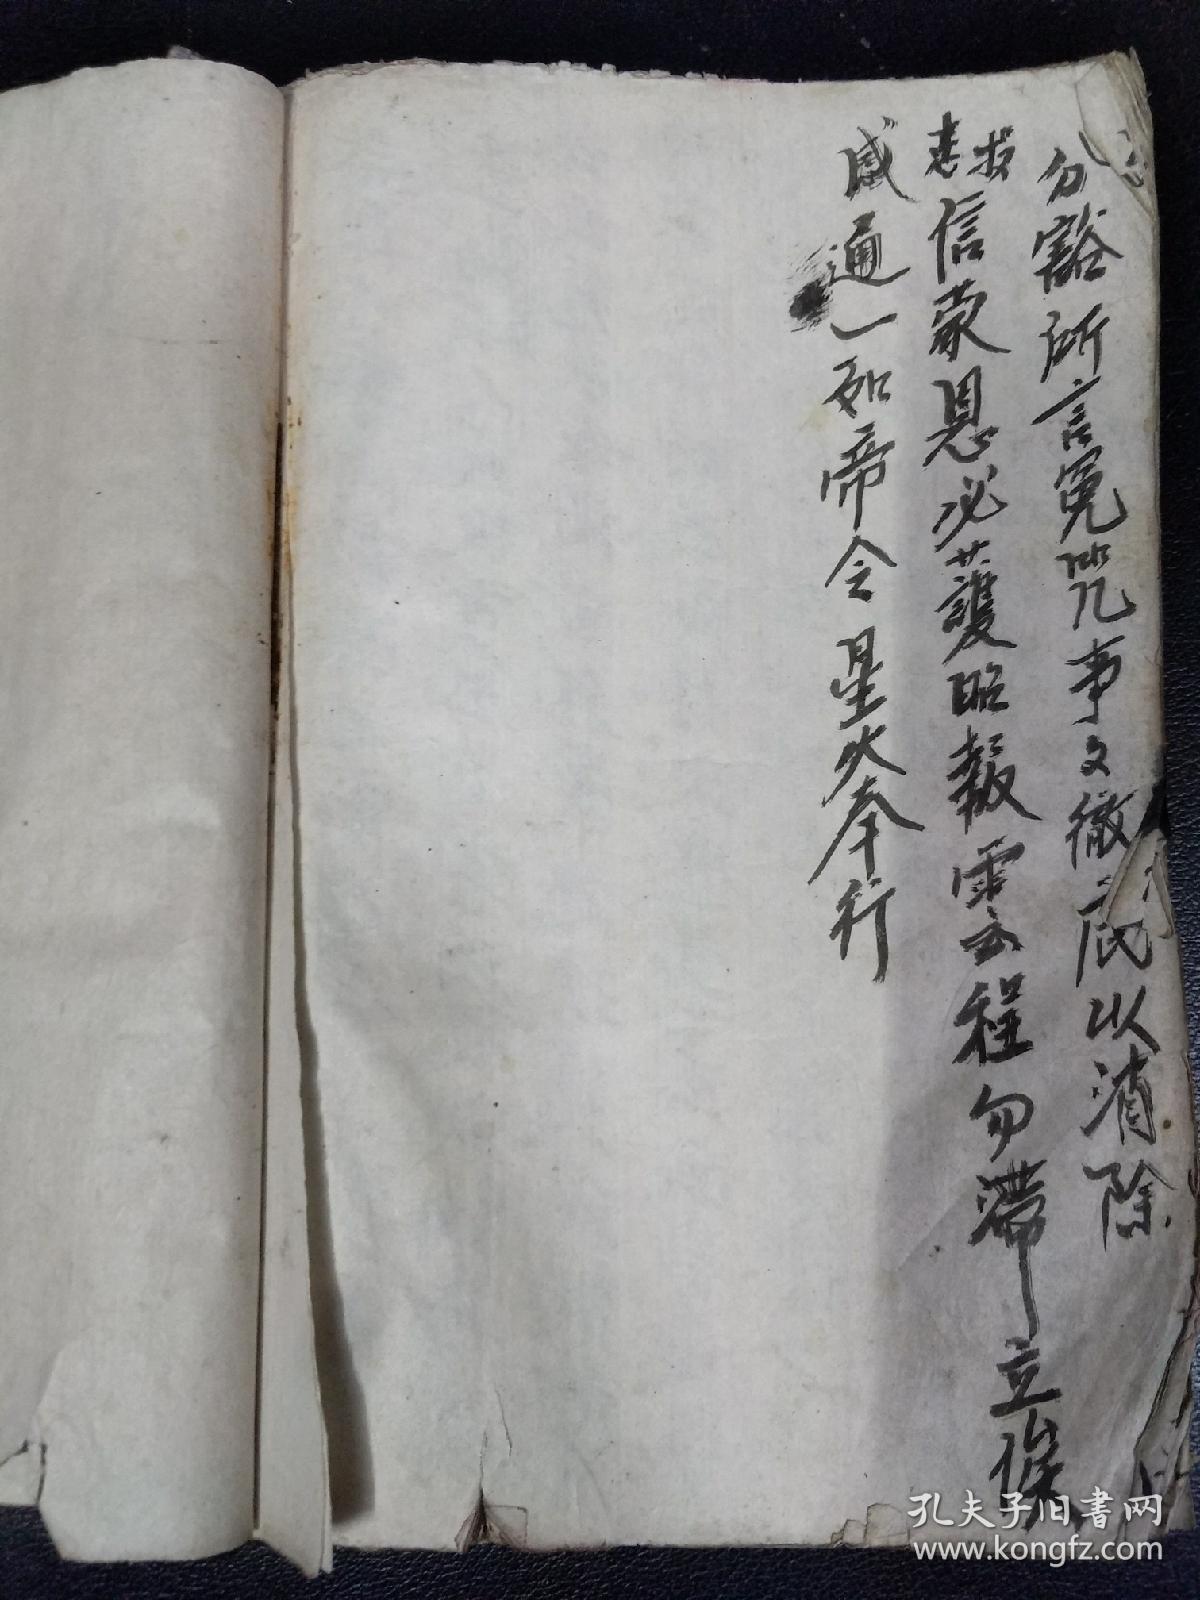 分豁所言冤咒事文徹底以消除
信蒙恩必護昭報雲程勿滯立俟
感通一如帝令星火奉行
孔夫子旧书网
www.kongfz.com